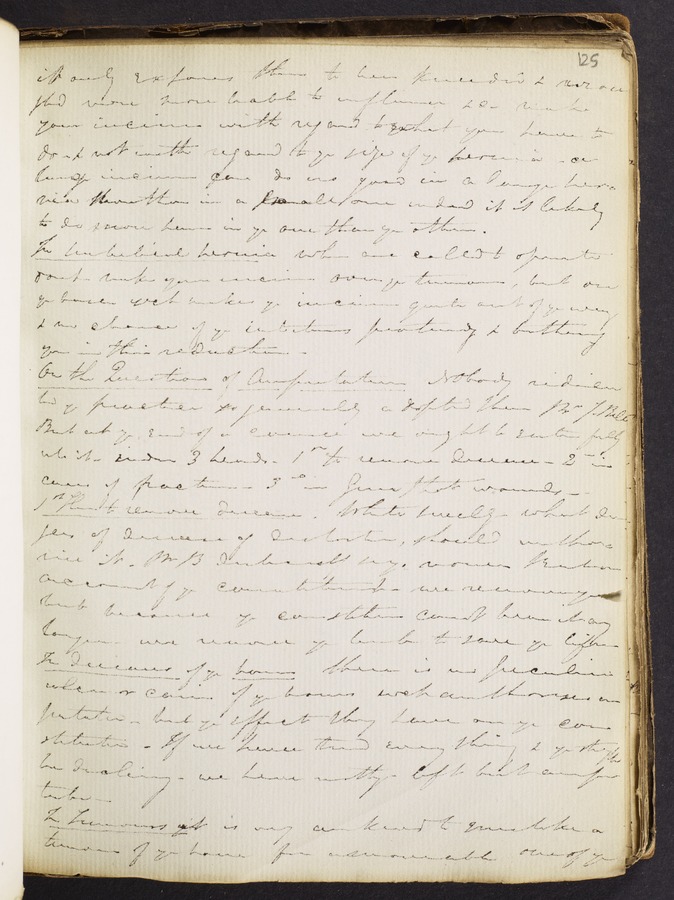 125
it only exposes them to be &
more liable to influence &c - make
your incisions with regard to what you have to
do & not with regard to ye size of ye hernia - a
large incision can do no good in a large her
nia more than in a small one indeed it is likely
to do more harm in ye one than ye other.
In Umbilical hernia when one called to operate
dont make your incision over ye tumour, but on
ye base wch makes ye incision quite out of ye way
& no chance of ye intestines protruding & bothering
you in this reduction -
On the Question of Amputation Nobody
ye practice so generally adopted than Mr J. Bell
But at ye end of a course we ought to enter fully
into it - under 3 heads - 1st to remove disease - 2nd in
cases of fracture - 3rd in Gun Shot wounds -
1st to remove disease. White swelling - what
gees of disease & distortion, should autho
rise it. Mr B
account of ye constitution - we remove ye
but because ye constitution cannot bear it any
longer we remove ye limb to save ye life
In diseases of ye bones there is no peculiar
ulcer or caries of ye bones wch authorises am
putation - but ye effect they have on ye con
stitution - If we have tried every thing & ye strength
be declining - we have nothing left but ampu
tation -
In Tumours it is very awkward to mistake a
tumour of ye bone for a moveable one of ye